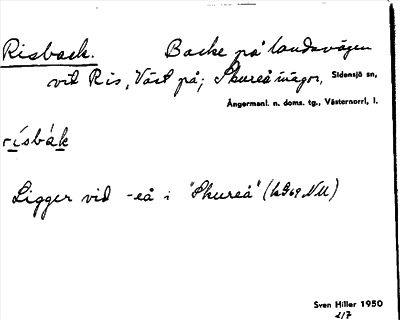 Risback. Backe på landsvägen
vid Ris, Väst på, Skureå mågor, Sidensjö sn,
Ångermanl. n. doms. tg., Västernorrl. l.
rísbák
Ligger vid -eå i "Skureå" (NU)
Sven Hiller 1950
2/7